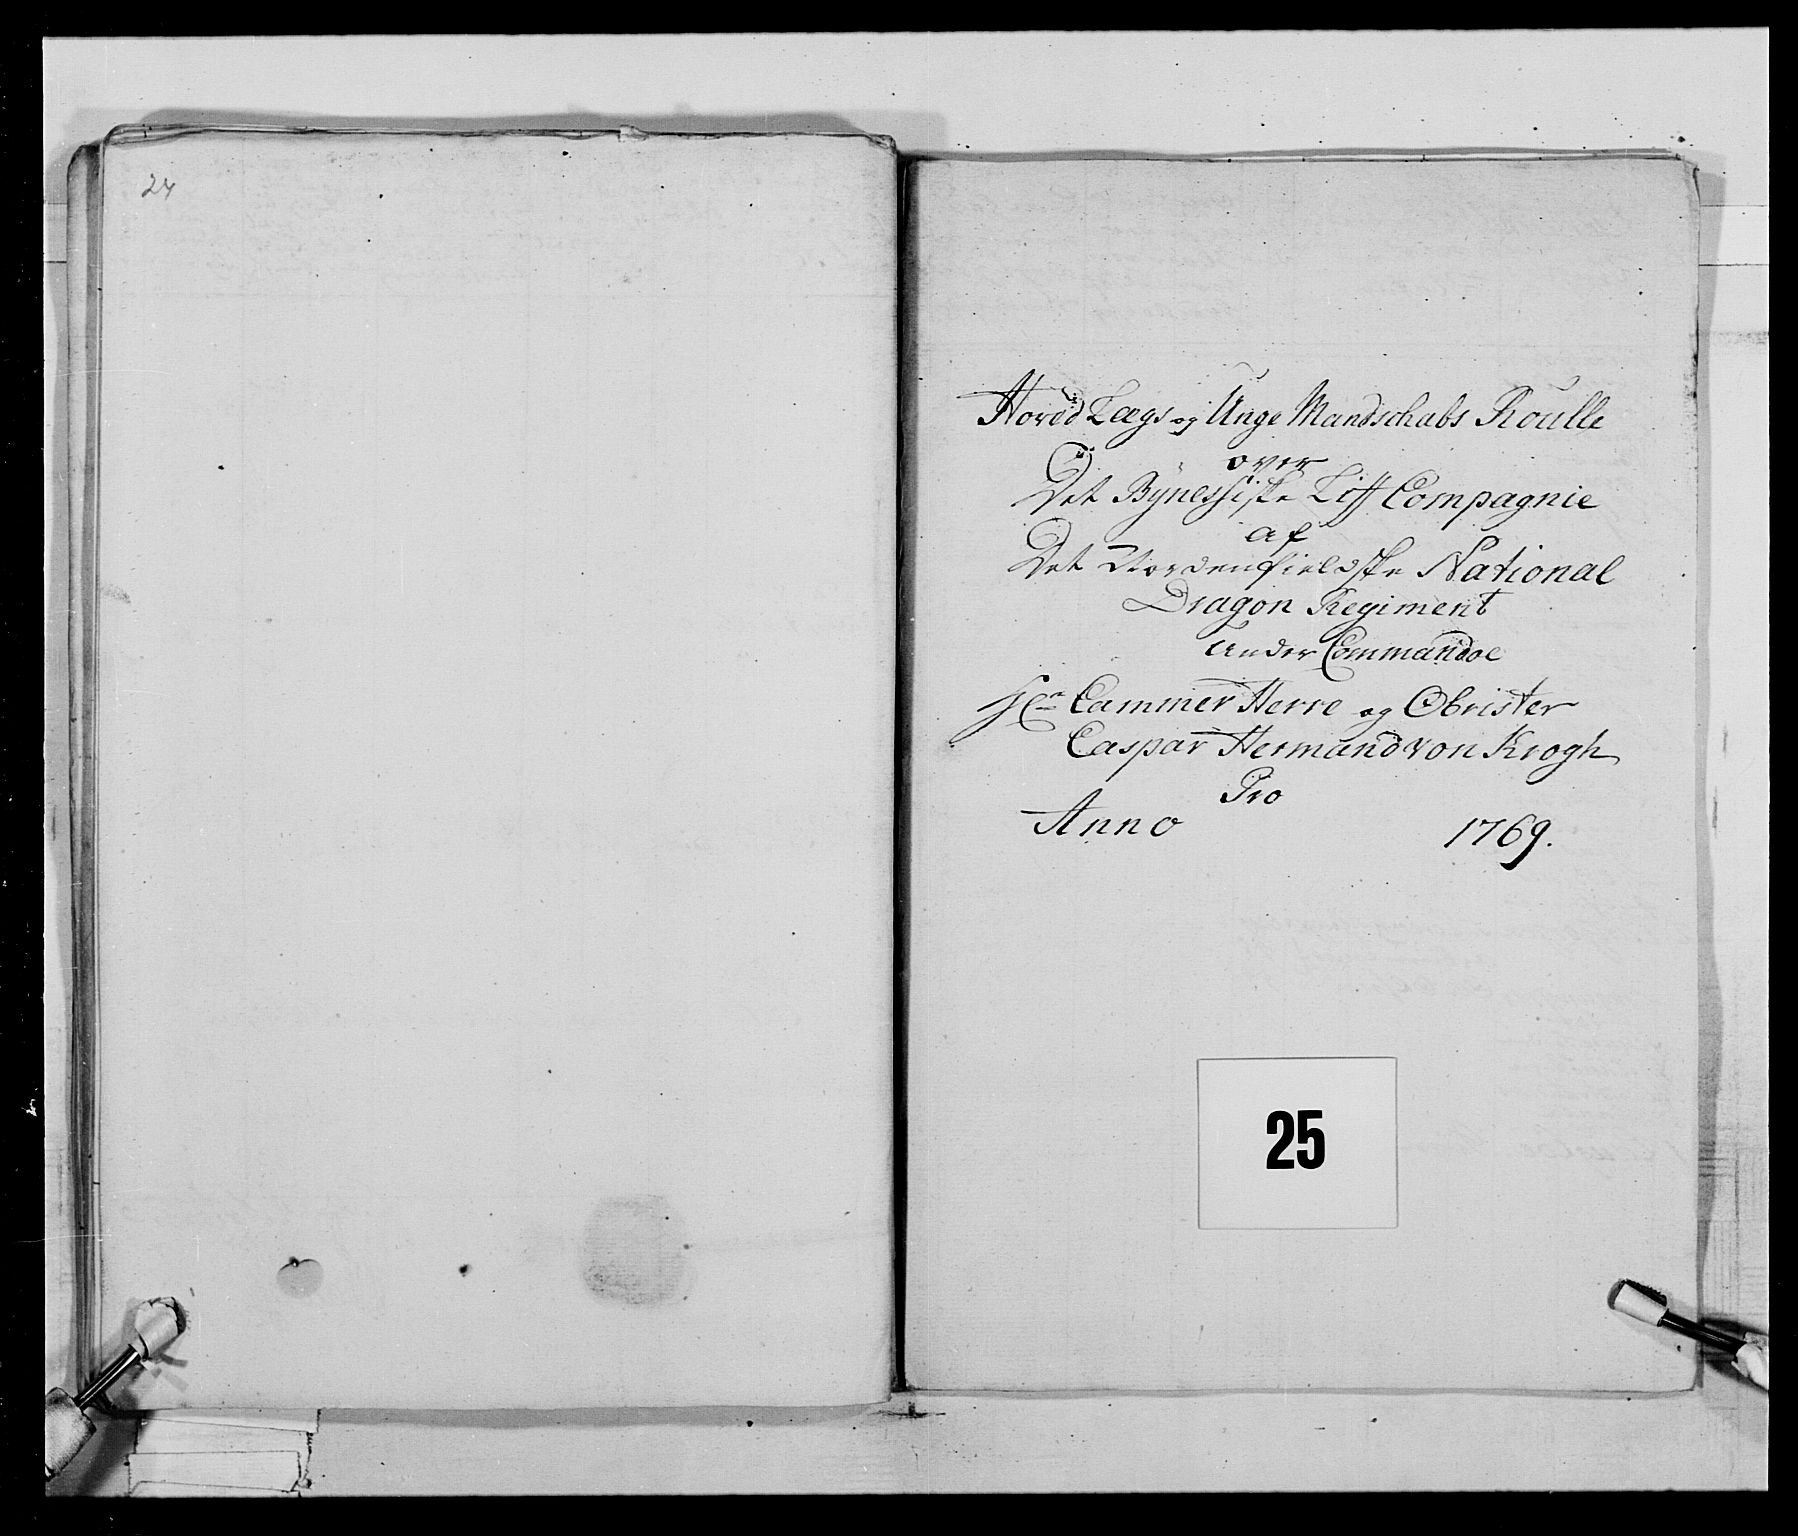 24
Hoved Lægs og Unge Mandschabs Roulle
over
Det Bÿnessiske Liff Compagnie
af
Det Nordenfieldske National
Dragon Regiment
under Commandoe
Hr Cammer Herre og Obrister
Caspar Hermand von Krogh
Pro
Anno 1769.
25